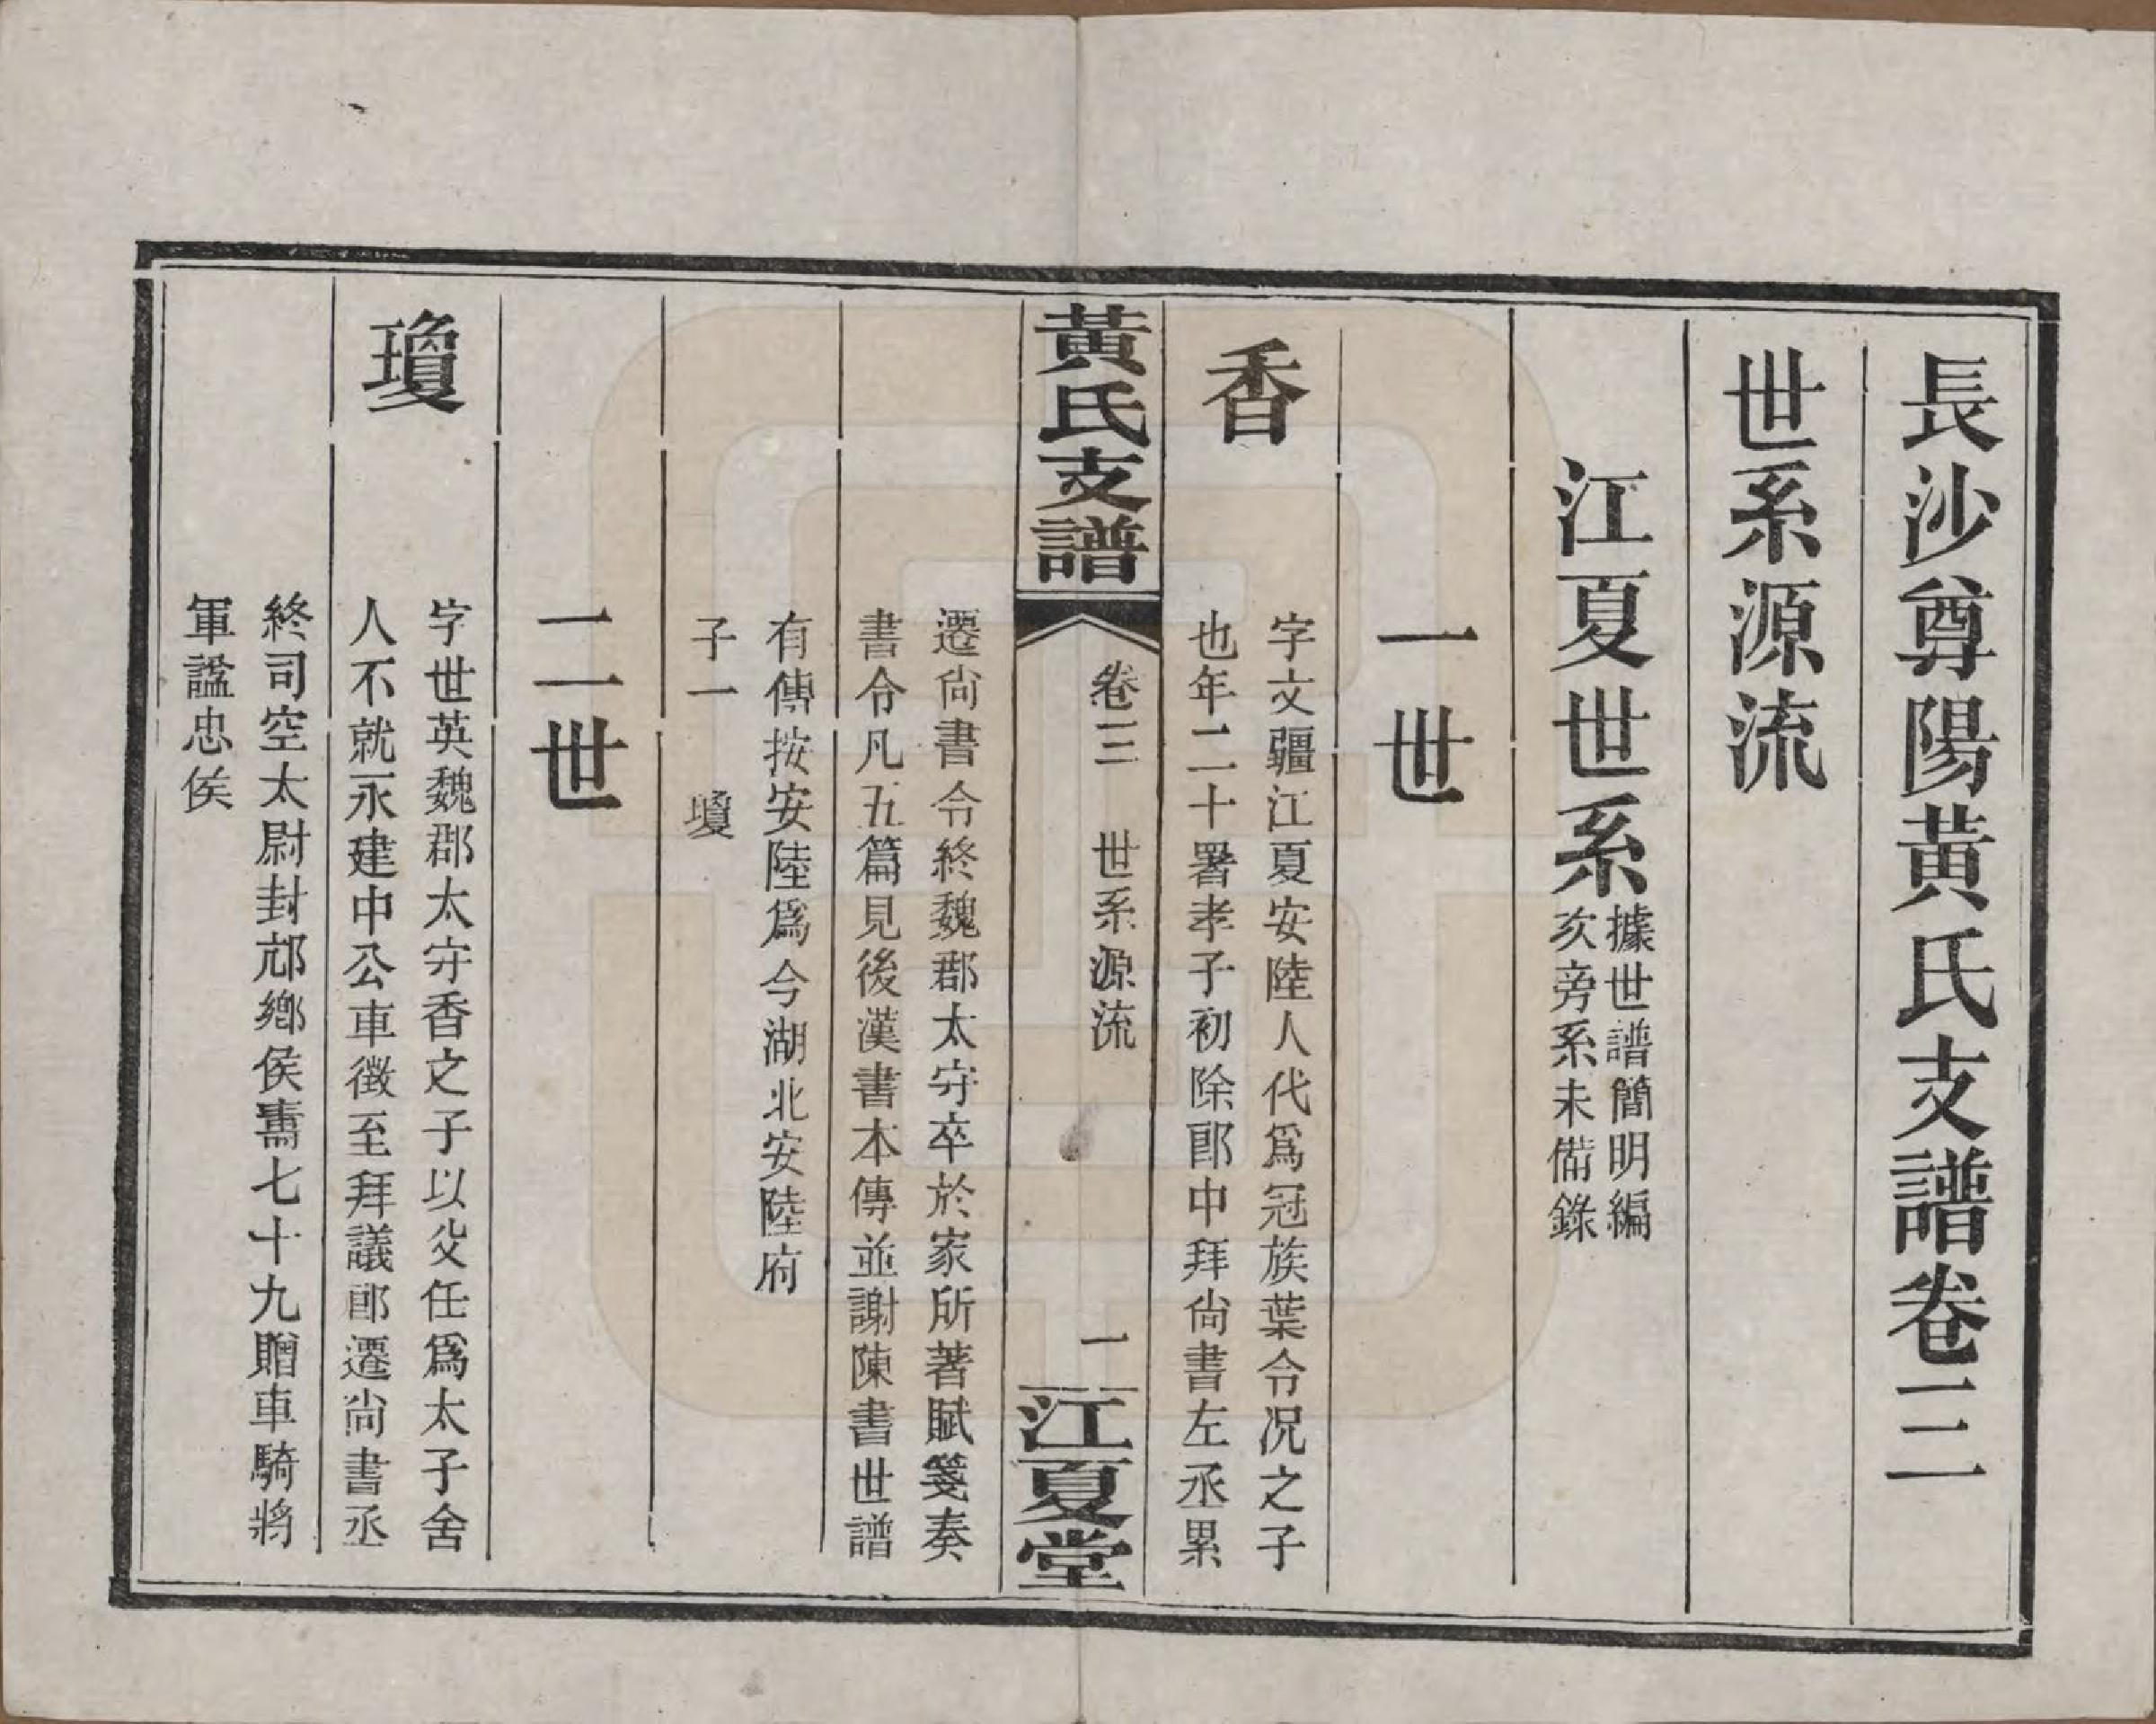 長沙尊陽黃氏支譜卷三
世系源流
江夏世系
據世譜簡明編
次旁系未備錄
一世
香
字文疆江夏安陸人代爲冠族葉令况之子
也年二十署孝子初除郎中拜尙書左丞累
黃氏支譜
卷三 世系源流
一
江夏堂
遷尙書令終魏郡太守卒於家所著賦箋奏
書令凡五篇見後漢書本傳並謝陳書世譜
有傳按安陸爲今湖北安陸府
子一 瓊
二世
瓊
字世英魏郡太守香之子以父任爲太子舍
人不就永建中公車徵至拜議郎遷尙書丞
終司空太尉封邟鄉侯壽七十九贈車騎將
軍諡忠侯